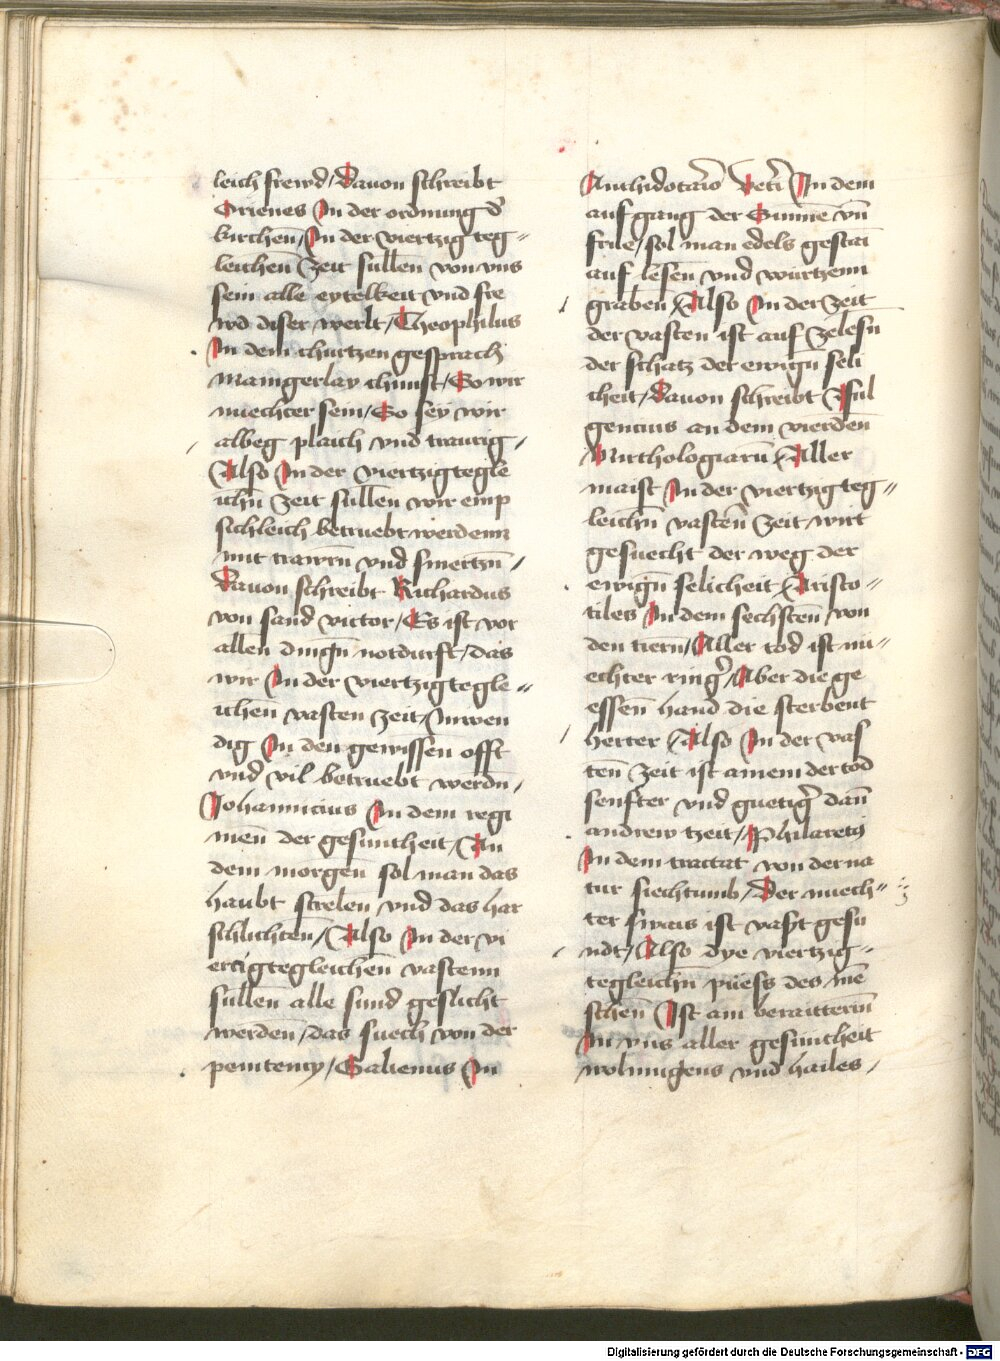 leich frewd / Davon schreibt
Orienes In der ordnung d̉
kirchen̄ / In der viertzig teg⸗
leichen̄ Zeit sullen̄ von vns
sein alle eytelkeit vnd fre
wd diser werlt / Theophilus
In dem churtzen gesprach
Maingerlay chunst / So wir
nuechter sein / So sey wir
albeg plaich vnd traurig /
Also In der Viertzigtegle
ichn̄ Zeit sullen̄ wir emp
sichleich betruebt werdenn
mit trawrn̄ vnd smertzn̄ /
Davon schreibt Richardus
von sand victor / Es ist vor
allen dingn̄ notdurft / das
wir In der viertzigtegle⸗
ichen̄ vasten zeit / Inwen
dig In den gewissen offt
vnd vil betruebt werdn̄ /
Johannicius In dem regi
men̄ der gesuntheit / An
dem morgen̄ sol man das
haubt strelen̄ vnd das har
schlichten̄ / Also In der vi
ertzigtegleichen̄ vastenn
sullen̄ alle sund geslicht
werden̄ / das suech von der
penitency / Galienus In
Anthidotario In dem
aufgang der Sunne vn̄
frue / sol man edels gestai
auf lesen̄ vnd würtzenn
graben / Also In der Zeit
der vasten ist auf Zelesn̄
der schatz der ewign̄ seli
cheit / davon schreibt Ful
gencius an dem vierden̄
Mirthologiarū / Aller
maist In der viertzig teg⸗
leichn̄ vasten̄ Zeit wirt
gesuecht der weg der
ewign̄ selicheit / Aristo⸗
tiles In dem sechsten̄ von
den tiern̄ / Aller tod ist nu⸗
echter ring̉ / Aber die ge
essen̄ hand die sterbent
herter / Also In der vas
ten̄ Zeit ist ainem der tod
senfter vnd guetig̉ dan̄
andrew tzeit / Philaretꝰ
In dem tractat von der na
tur siechtumb / Der nuech⸗
ter swais ist vast gesu
ndt / Also dye viertzig⸗
tegleichn̄ püess des me͞
schen̄ Ist ain beraitterin̄
In vns aller gesuntheit
wolmugens vnd hailes /
Digitalisierung gefördert durch die Deutsche Forschungsgemeinschaft - DFG